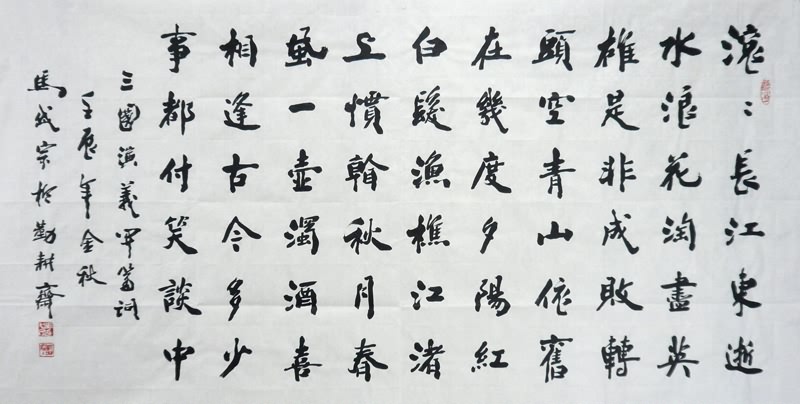 滾〻長江東逝
水浪花淘盡英
雄是非成敗轉
頭空青山依舊
在幾度夕陽紅
白髮漁樵江渚
上慣看秋月春
風一壺濁酒喜
相逢古今多少
事都付笑談中
三國演義開篇詞
壬辰年金秋
馬成宗於勤耕齋